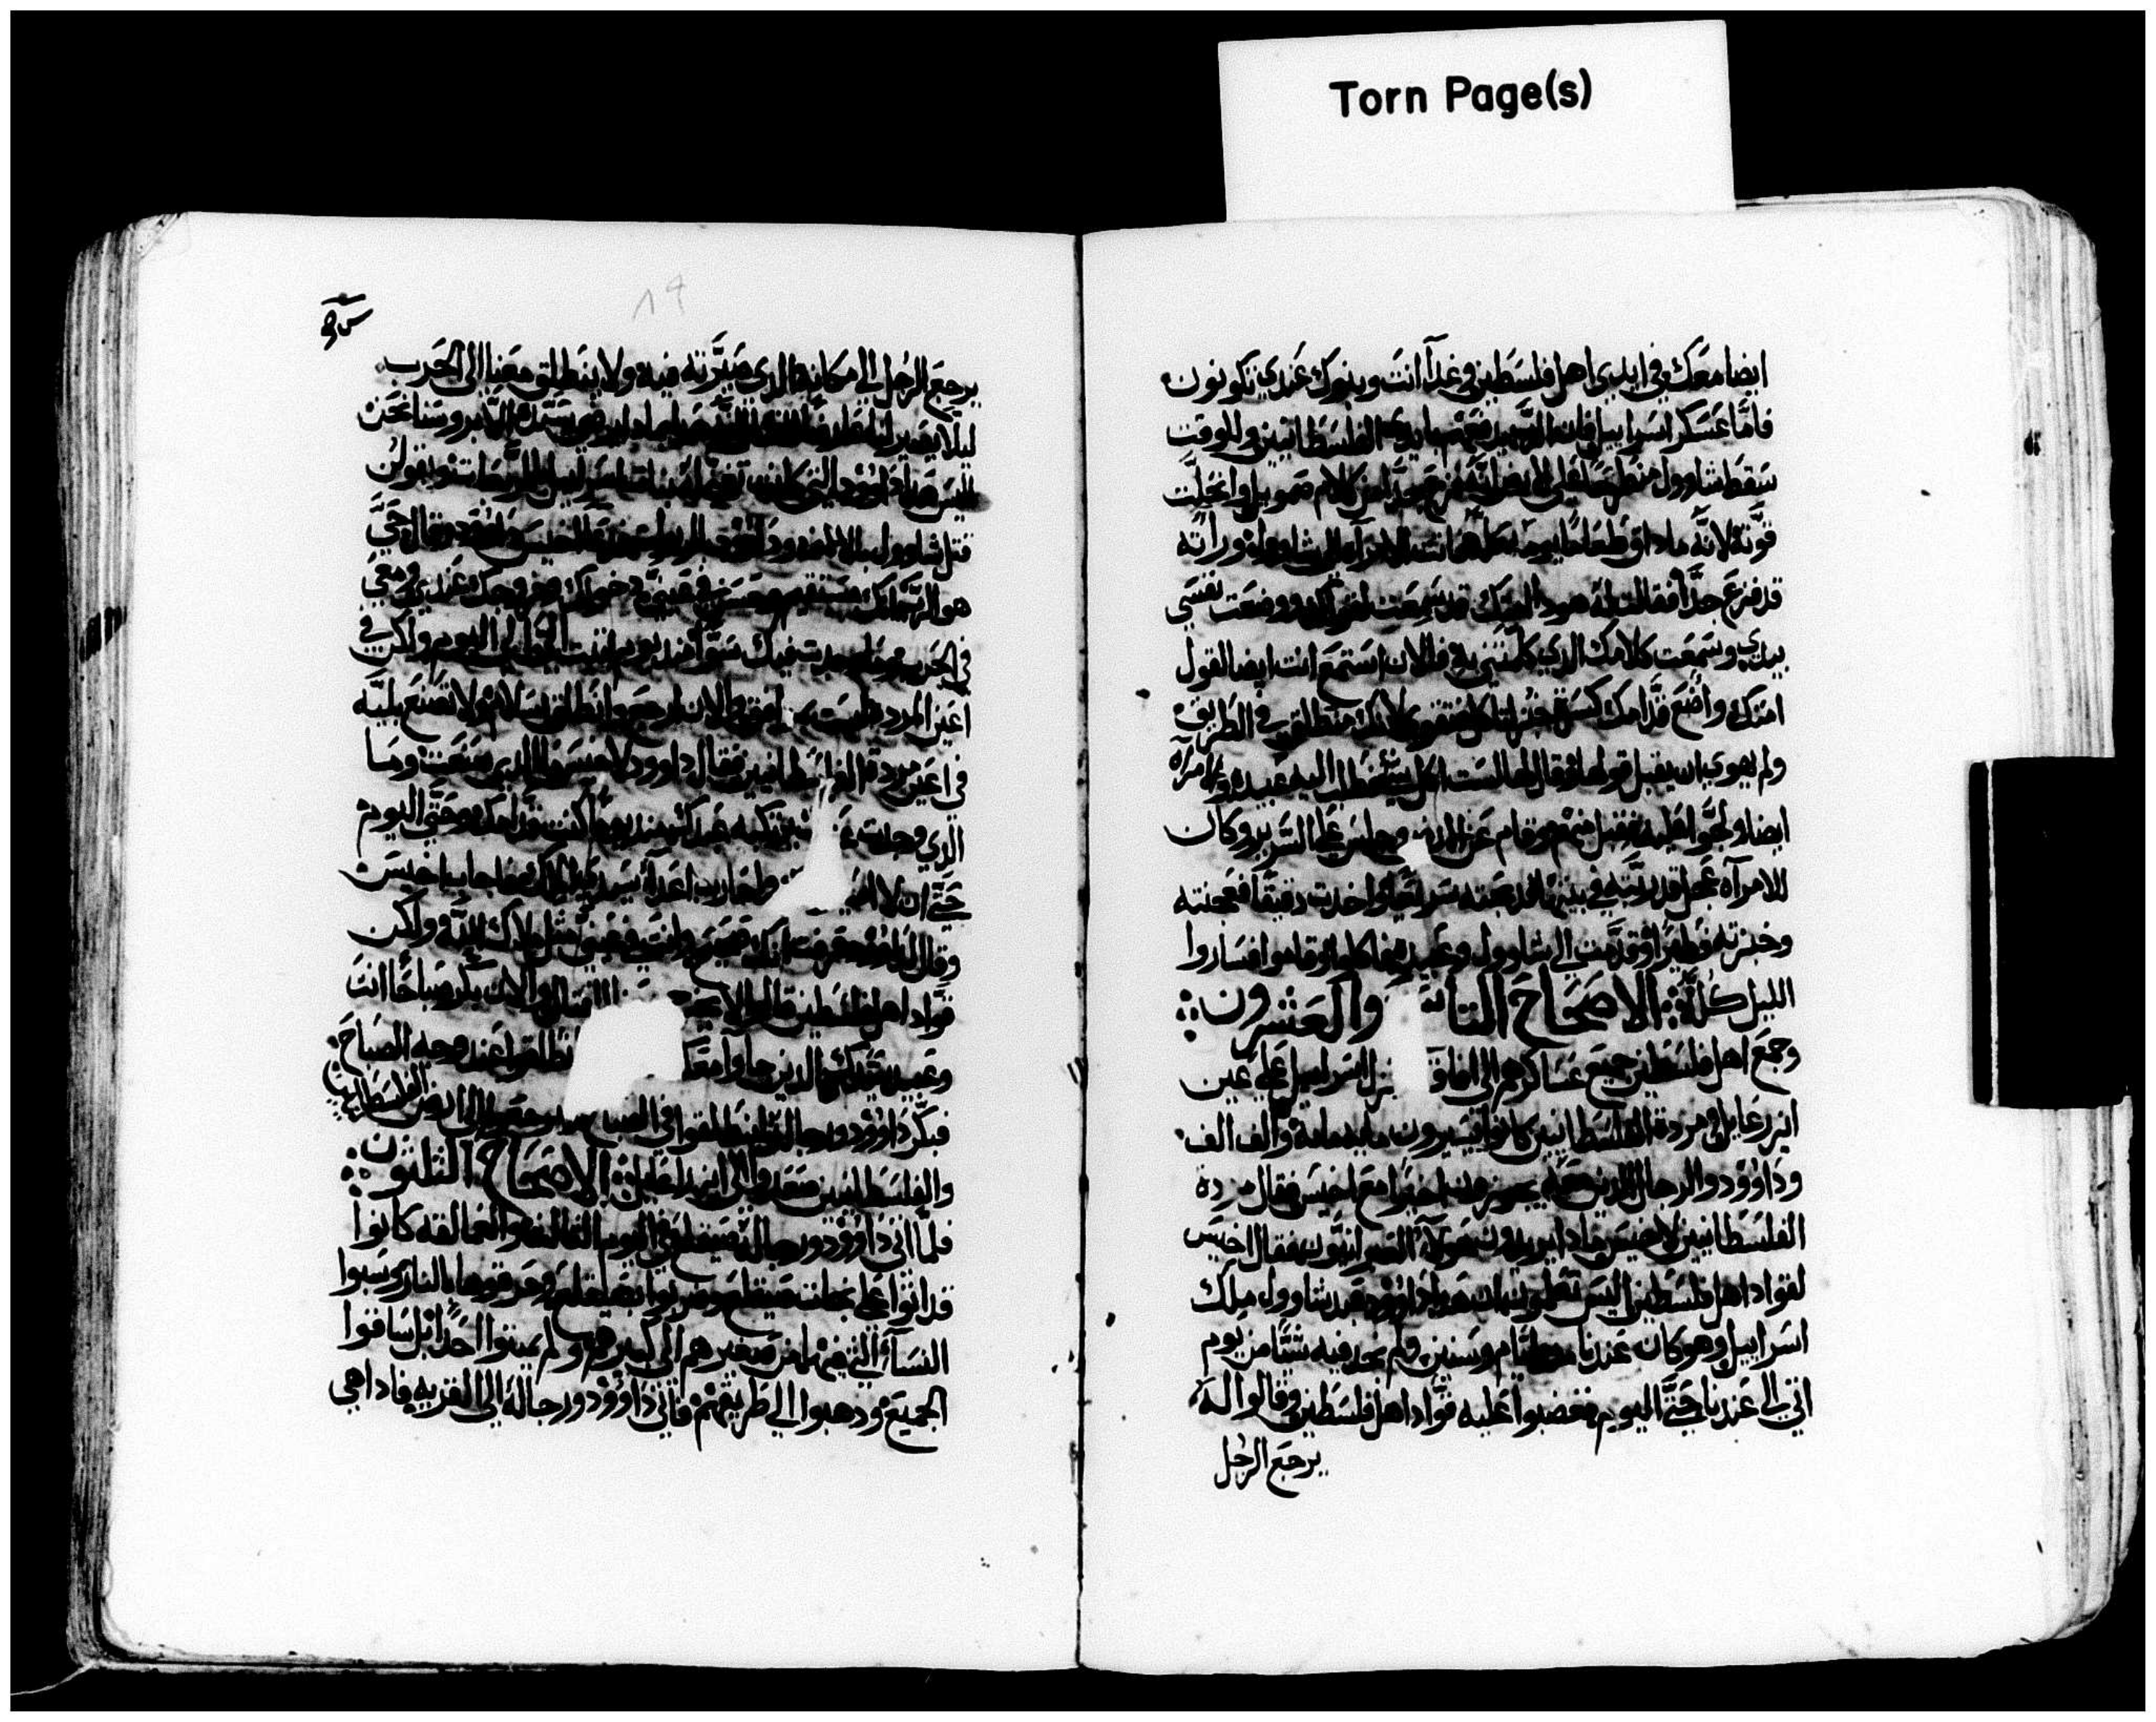 Torn Page(s)
ايضا معك في ايدي اهل فلسطين وغدآ انت وبنوك عندي تكونون
فامَّا عسكر اسراييل فان الرب يدفعهم بايدي الفلسطانيين وللوقت
سقط شاوول منطرحا على الارض لانه فزع جدا من كلام صمويل وانحلت
قوته لانه ماداق طعاما يومه كله فاتت الامرآه الى شاوول وراته
قد فزع جدا فقالت له هودا امتك قد سمعت لقولك ووضعت نفسي
بيدي وسمعت كلامك الدي كلمتني به فالان استمع انت ايضا لقول
امتك واضع قدامك كسرة خبز لتاكل وتتقوى لانك منطلق في الطريق
ولم يهوى ان يقبل قولها وقال لها لست اكل شي فطلب اليه عبيده والامرآه
ايضا ولجوا عليه فقبل منهم وقام عن الارض وجلس على السرير وكان
للامرآه عجل قد ربته في بيتها فدبحته سريعا واخدت دقيقا فعجنته
وخبزته فطيرا وقدمت الى شاوول وعبيده فاكلوا وقاموا فساروا
الليل كله الاصحاح التا والعشرون
وجمع اهل فلسطين جميع عساكرهم الى افاق زل اسراييل على عين
ايزرعايل ومردة الفلسطانيين كانوا يسيرون مايه مايه والف الف
وداوود والرجال الدين معه يجوزون اخيرا مع اخيس فقال مردة
الفلسطانيين لاخيس مادا يريدون هولاء العبرانيون فقال اخيس
لقواد اهل فلسطين اليس تعلمون ان هدا داوود عبد شاوول ملك
اسراييل وهو كان عندنا ايام وسنين ولم نجد فيه شيًا من يوم
اتى الى عندنا حتى اليوم فغضبوا عليه قواد اهل فلسطين وقالوا له
يرجع الرجل
٨٩
يرجع الرجل الى مكانه الدي صيرته فيه ولا ينطلق معنا الى الحرب
ليلا يصير لنا روسنا نحن
اليس هدا داوود التي كانت بنات اسراييل يقولن
قتل شاوول بالالف وداوود اخيس داوود وقال حي
هو الرب انك مستقيم وحسن في عيني دخولك وخروجك عندي ومعي
في الحرب وما وجدت فيك سوًا مند يوم اتيت الي الى اليوم ولكن في
اعين المرده ليست والان ارجع وانطلق بسلام ولا تصنع بليه
في اعين مردة الفلسطانيين فقال داوود لاخيس ما الدي صنعت وما
الدي وجدت عبدك مند يوم كنت قدامك وحتى اليوم
حتى ان لا ا واحارب اعدآ سيدي الملك فاجاب اخيس
وقال لداوود عرفت انك وانت في عيني مثل ملاك الله ولكن
قواد اهل فلسطين قالوا لا القتال والان بكر صباحا انت
وعبيد سيدك الدين جاوا معك نطلقوا عند وجه الصباح
فبكر داوود ورجاله لينطلقوا في الصباح الى ارض الفلسطانيين
والفلسطانيين صعدوا الى ايزراعايل الاصحاح التلتون
فلما اتى داوود ورجاله صيقلغ في اليوم التالت والعمالقه كانوا
قد اتوا على صيقلغ وضربوا صيقلغ وحرقوها بالنار وسبوا
النسآ التي فيها من صغيرهم الى كبيرهم ولم يميتوا احدًا بل ساقوا
الجميع ودهبوا الى طريقهم فاتى داوود ورجاله الى القريه فادا هي